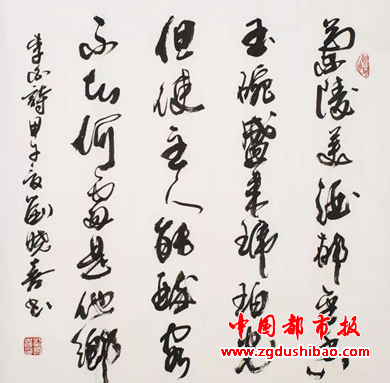 蘭陵美酒郁金香
玉碗盛来琥珀光
但使主人能醉客
不知何處是他鄉
李白詩甲午夏劉曉喜书
中国都市报
www.zgdushibao.com